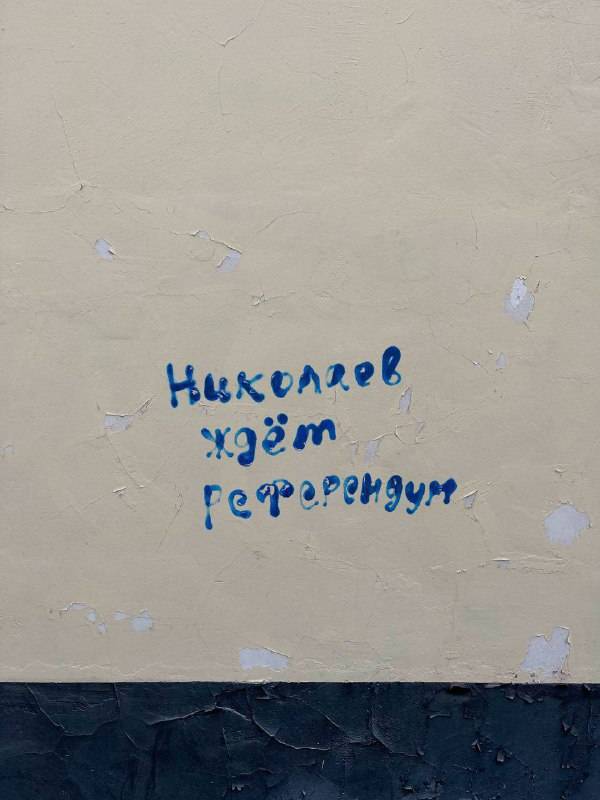 Николаев
ждём
референдум